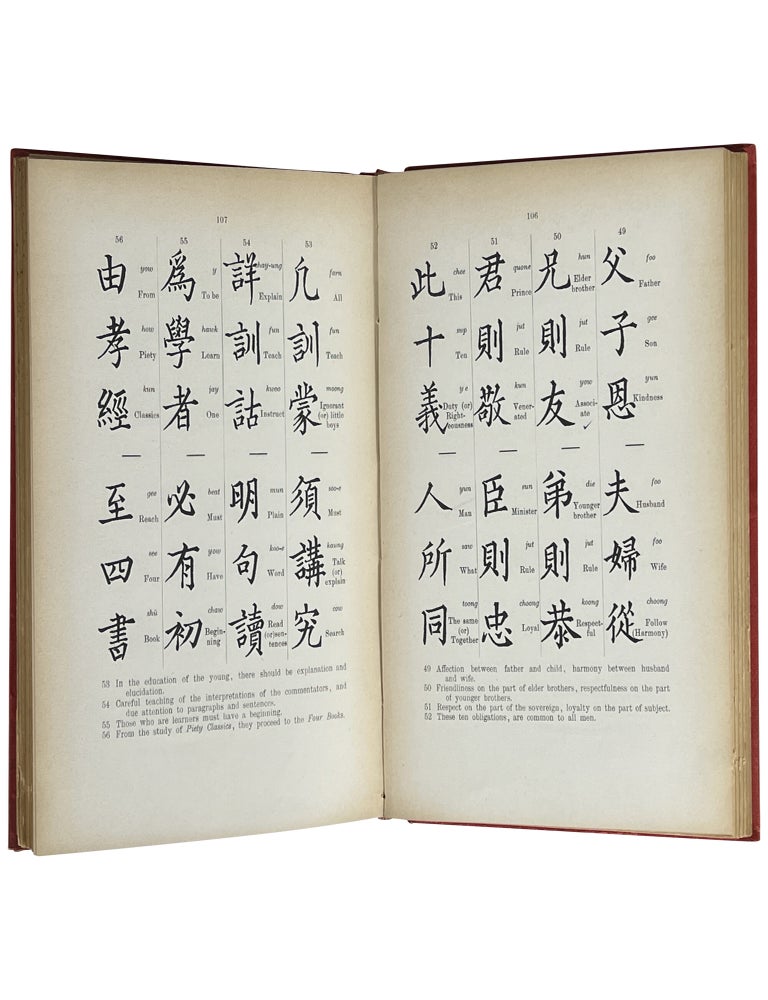 106
49
父 foo Father
子 gee Son
恩 yun Kindness
—
夫 foo Husband
婦 foo Wife
從 choong Follow (Harmony)
50
兄 hun Elder brother
則 jut Rule
友 yow Associ-ate
—
弟 die Younger brother
則 jut Rule
恭 koong Respect-ful
51
君 quone Prince
則 jut Rule
敬 kun Vener-ated
—
臣 sun Minister
則 jut Rule
忠 choong Loyal
52
此 chee This
十 sup Ten
義 ye Duty (or) Right-eousness
—
人 yun Man
所 saw What
同 toong The same (or) Together
49 Affection between father and child, harmony between husband
and wife.
50 Friendliness on the part of elder brothers, respectfulness on the part
of younger brothers.
51 Respect on the part of the sovereign, loyalty on the part of subject.
52 These ten obligations, are common to all men.
107
53
凢 farn All
訓 fun Teach
蒙 moong Ignorant (or) little boys
—
須 soo-e Must
講 kaung Talk (or) explain
究 cow Search
54
詳 hay-ung Explain
訓 fun Teach
詁 kwoo Instruct
—
明 mun Plain
句 koo-e Word
讀 dow Read (or)sen-tences
55
爲 y To be
學 hawk Learn
者 jay One
—
必 beat Must
有 yow Have
初 chaw Begin-ning
56
由 yow From
孝 how Piety
經 kun Classics
—
至 gee Reach
四 see Four
書 shü Book
53 In the education of the young, there should be explanation and
elucidation.
54 Careful teaching of the interpretations of the commentators, and
due attention to paragraphs and sentences.
55 Those who are learners must have a beginning.
56 From the study of Piety Classics, they proceed to the Four Books.